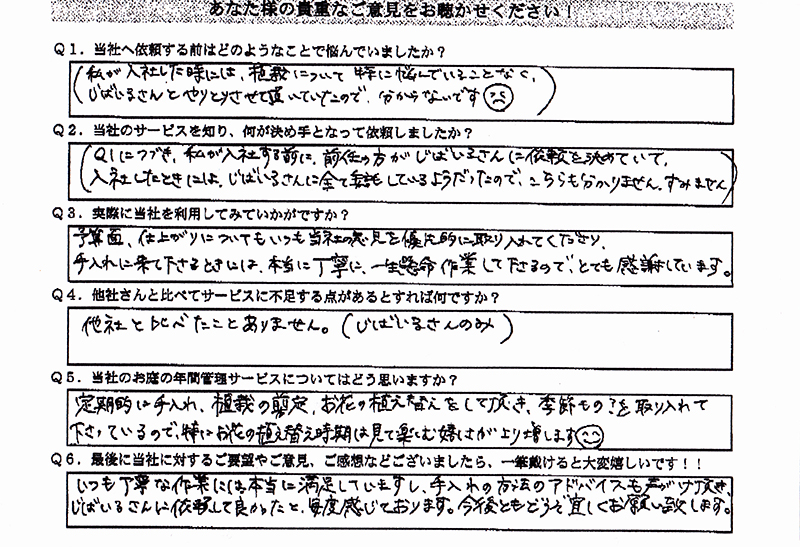 あなた様の貴重なご意見をお聴かせください！
Q1．当社へ依頼する前はどのようなことで悩んでいましたか？
(私が入社した時には、植栽について特に悩んでいることなく、
じばいるさんとやりとりさせて頂いていたので、分からないです☹)
Q2．当社のサービスを知り、何が決め手となって依頼しましたか？
(Q1につづき、私が入社する前に、前任の方がじばいるさんに依頼を決めていて、
入社したときには、じばいるさんに全て委託しているようだったので、こちらも分かりません。すみません)
Q3．実際に当社を利用してみていかがですか？
予算面、仕上がりについてもいつも当社の意見を優先的に取り入れてくださり、
手入れに来て下さるときには、本当に丁寧に、一生懸命作業して下さるので、とても感謝しています。
Q4．他社さんと比べてサービスに不足する点があるとすれば何ですか？
他社と比べたことありません。(じばいるさんのみ)
Q5．当社のお庭の年間管理サービスについてはどう思いますか？
定期的に手入れ、植栽の剪定、お花の植え替えをして頂き、季節もの?を取り入れて
下さっているので、特にお花の植え替え時期は見て楽しむ嬉しさがより増します☺
Q6．最後に当社に対するご要望やご意見、ご感想などございましたら、一筆戴けると大変嬉しいです！！
いつも丁寧な作業には本当に満足していますし、手入れの方法のアドバイスも声がけ頂き、
じばいるさんに依頼して良かったと、毎度感じております。今後ともどうぞ宜しくお願い致します。